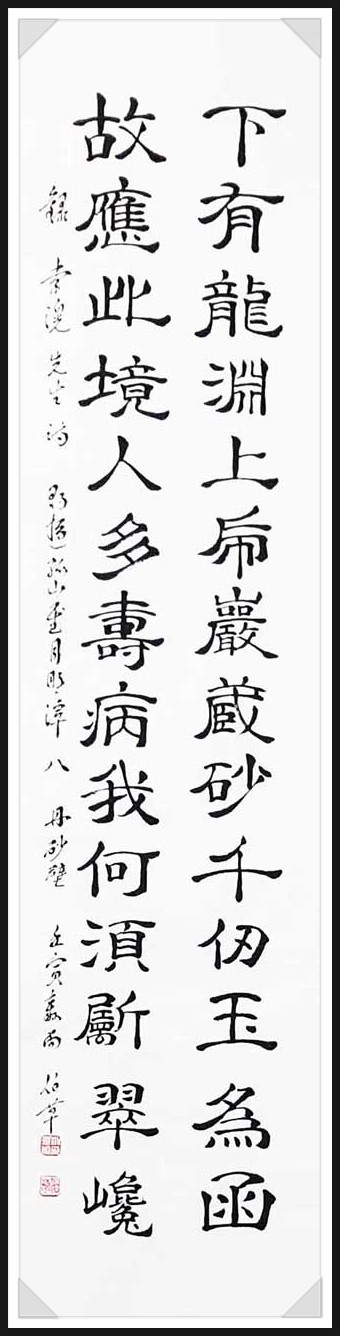 下有龍淵上虎巖藏砂千仞玉為函
故應此境人多壽病我何須斸翠巉
錄 李滉 先生詩 孤山至月明潭 八 丹砂壁 壬寅